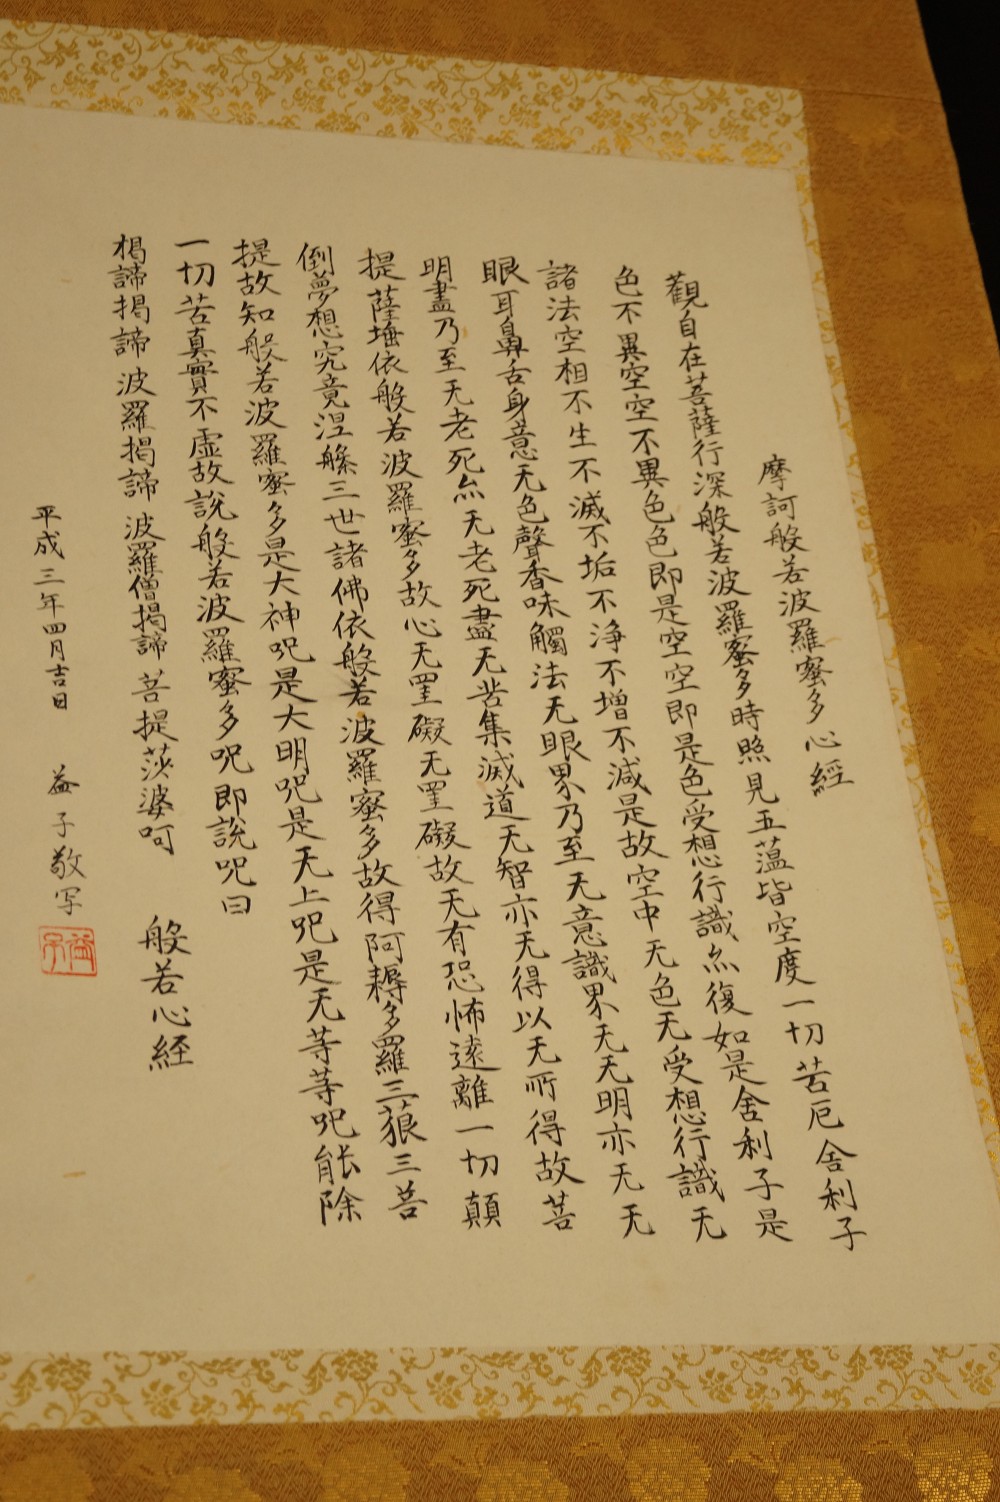 摩訶般若波羅蜜多心經
觀自在菩薩行深般若波羅蜜多時照見五蕰皆空度一切苦厄舍利子
色不異空空不異色色即是空空即是色受想行識亦復如是舍利子是
諸法空相不生不滅不垢不淨不增不減是故空中无色无受想行識无
眼耳鼻舌身意无色聲香味觸法无眼界乃至无意識界无无明亦无无
明盡乃至无老死亦无老死盡无苦集滅道无智亦无得以无所得故菩
提薩埵依般若波羅蜜多故心无罣礙无罣礙故无有恐怖遠離一切顛
倒夢想究竟涅槃三世諸佛依般若波羅蜜多故得阿耨多羅三藐三菩
提故知般若波羅蜜多是大神呪是大明呪是无上呪是无等等呪能除
一切苦真實不虛故說般若波羅蜜多呪即說呪曰
揭諦揭諦 波羅揭諦 波羅僧揭諦 菩提莎婆呵 般若心経
平成三年四月吉日 益子敬写
益子